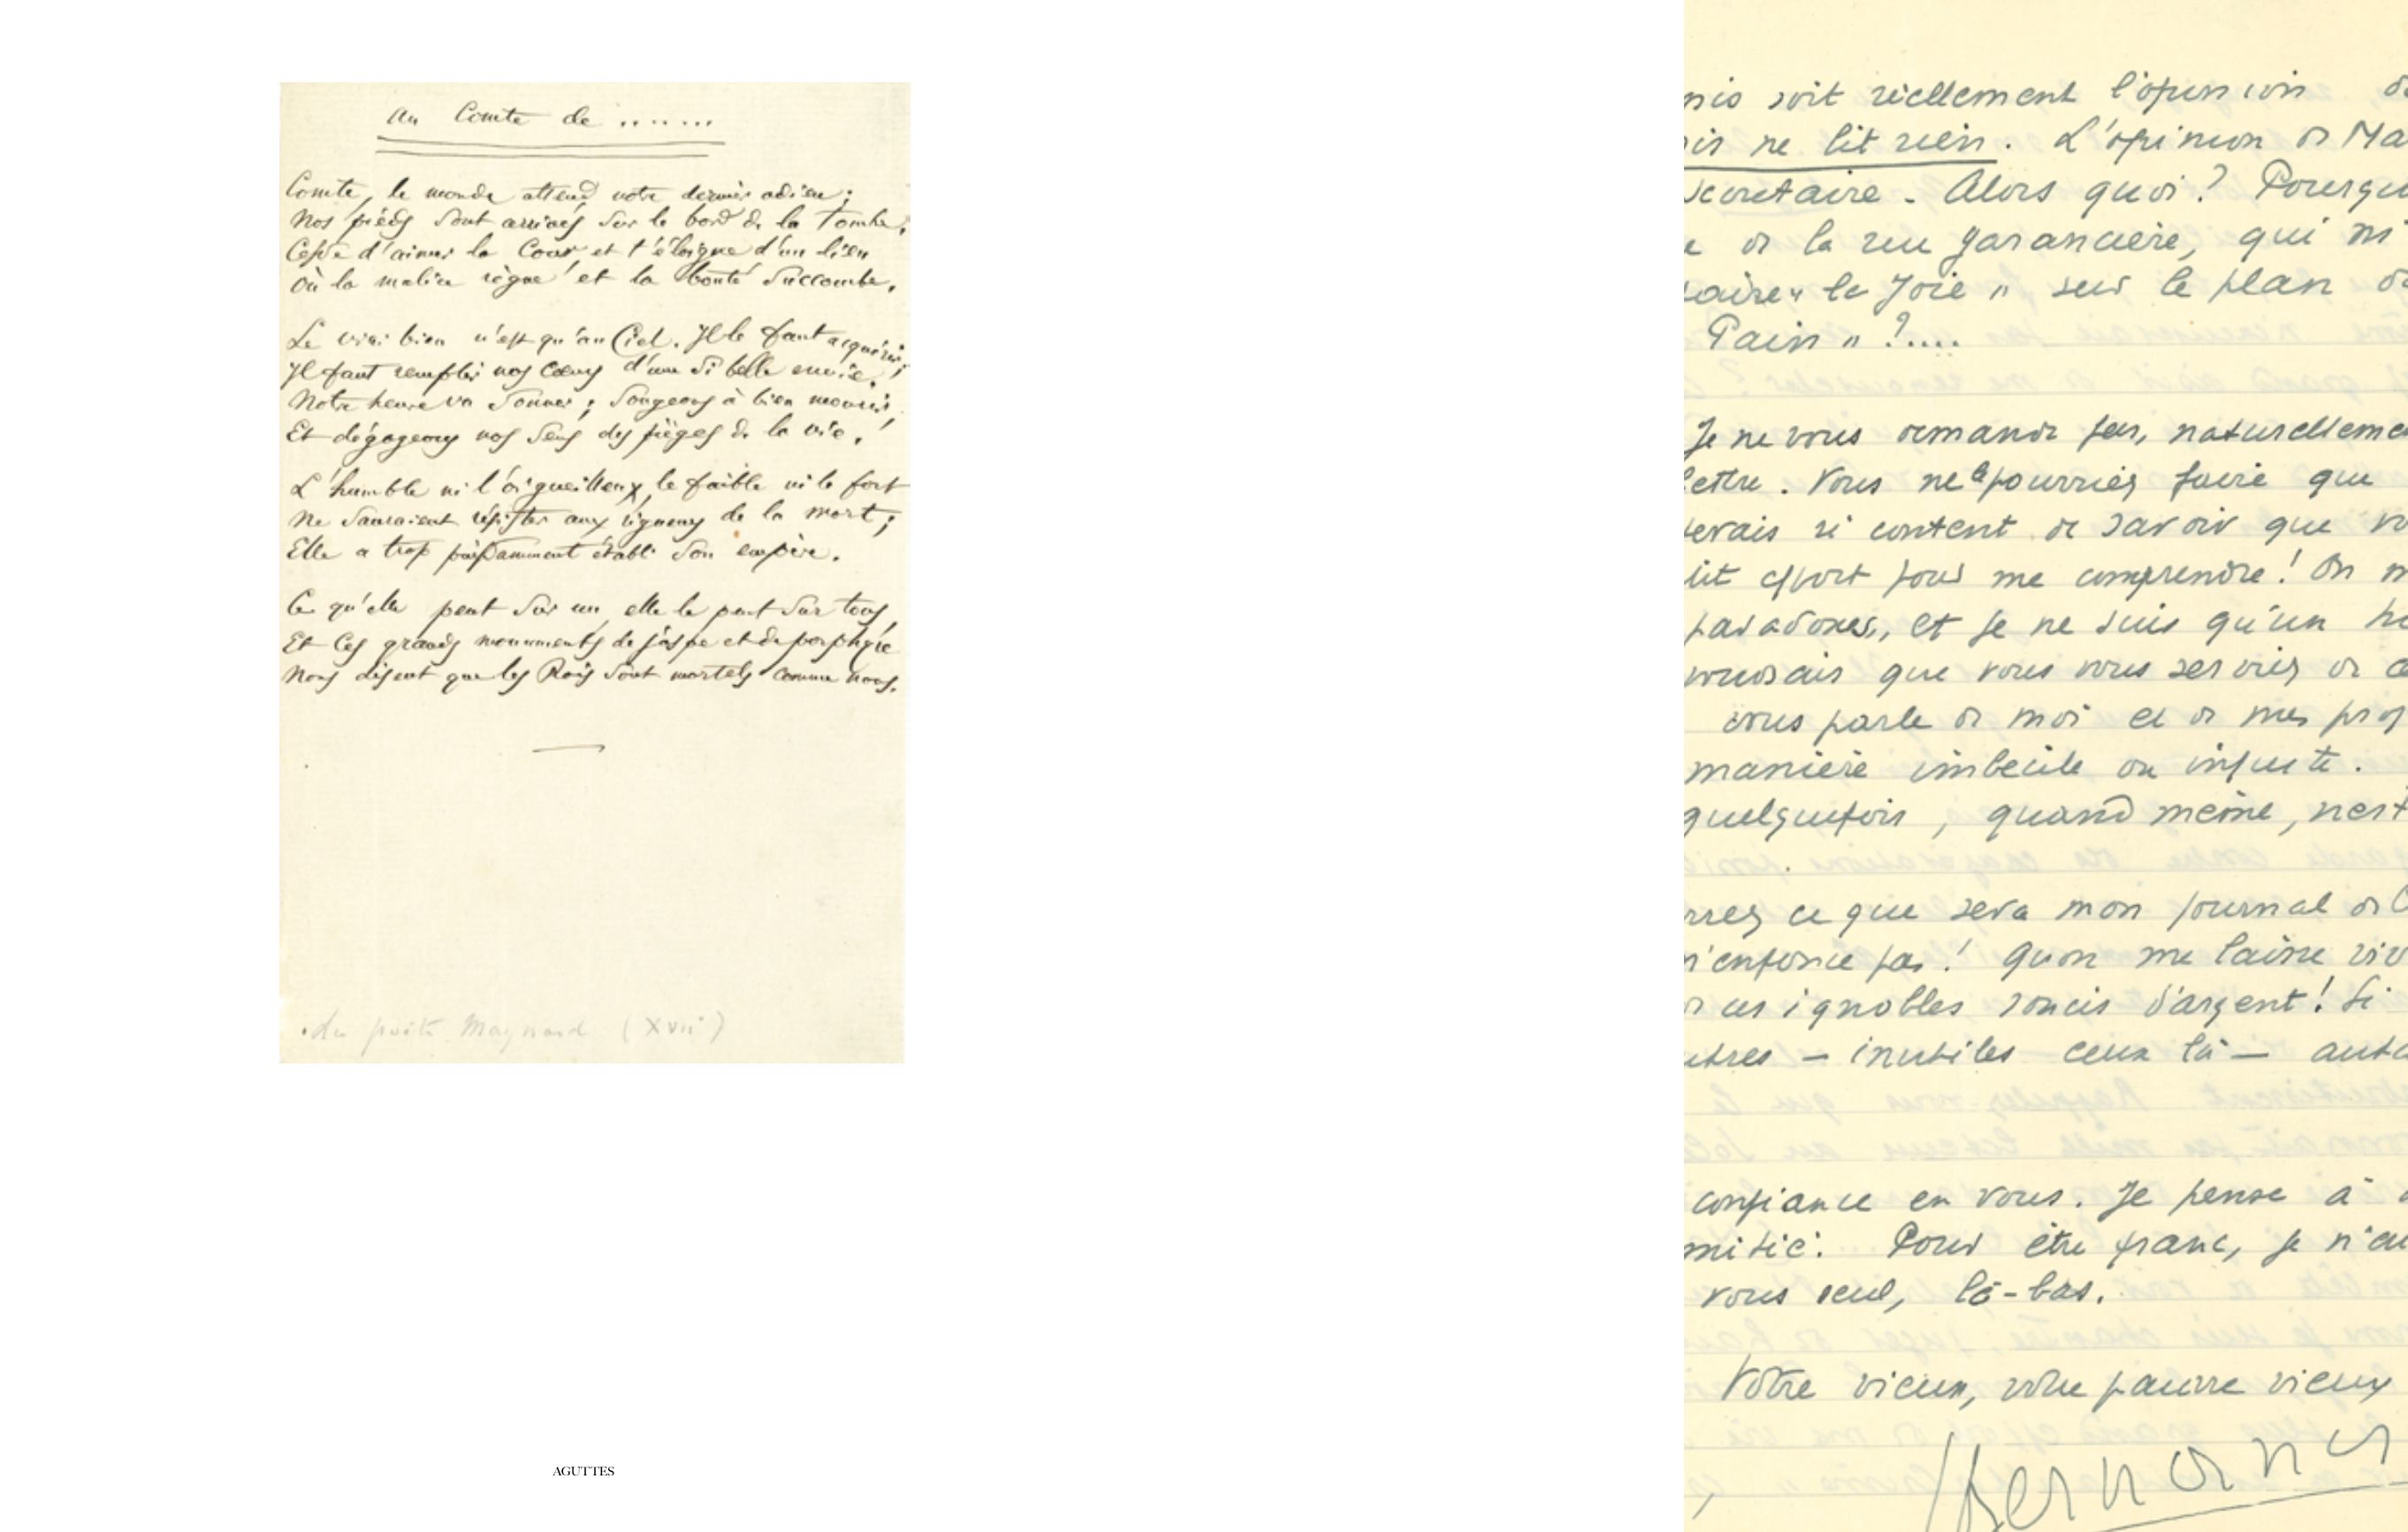 Au Comte de .......
Comte, le monde attend notre dernier adieu ;
Nos pieds sont arrivés sur le bord de la tombe.
Cesse d'aimer la Cour, et t'éloigne d'un lieu
Où la malice règne et la bonté succombe.
Le vrai bien n'est qu'au Ciel. Il le faut acquérir ;
Il faut remplir nos cœurs d'une si belle envie.
Notre heure va sonner ; songeons à bien mourir,
Et dégageons nos sens des pièges de la vie.
L'humble ni l'orgueilleux, le faible ni le fort
Ne sauraient résister aux rigueurs de la mort ;
Elle a trop puissamment établi son empire.
Ce qu'elle peut sur un, elle le peut sur tous,
Et ces grands monuments de jaspe et de porphyre
Nous disent que les Rois sont mortels comme nous.
du poète Maynard (XVII)
AGUTTES
soit réellement l'opinion
ne lit rien. L'opinion de Ma
secrétaire - Alors quoi ? Pourqu
de la rue Garancière, qui m'
"la Joie" sur le plan de
Pain" ?....
Je ne vous demande pas, naturelleme
lettre. Vous ne le pourriez faire que
serais si content de savoir que vo
effort pour me comprendre ! On m
paradoxes, et je ne suis qu'un ho
voudrais que vous vous serviez de ce
vous parle de moi et de mes pro
manière imbécile ou injuste.
quelquefois, quand même, n'est
rrez ce que sera mon journal de C
m'enfonce pas ! Qu'on me laisse viv
ces ignobles soucis d'argent ! Si
utres - inutiles ceux là - auta
confiance en vous. Je pense à
mitié. Pour être franc, je n'ai
vous seul, là-bas.
Votre vieux, votre pauvre vieux
Bernanos